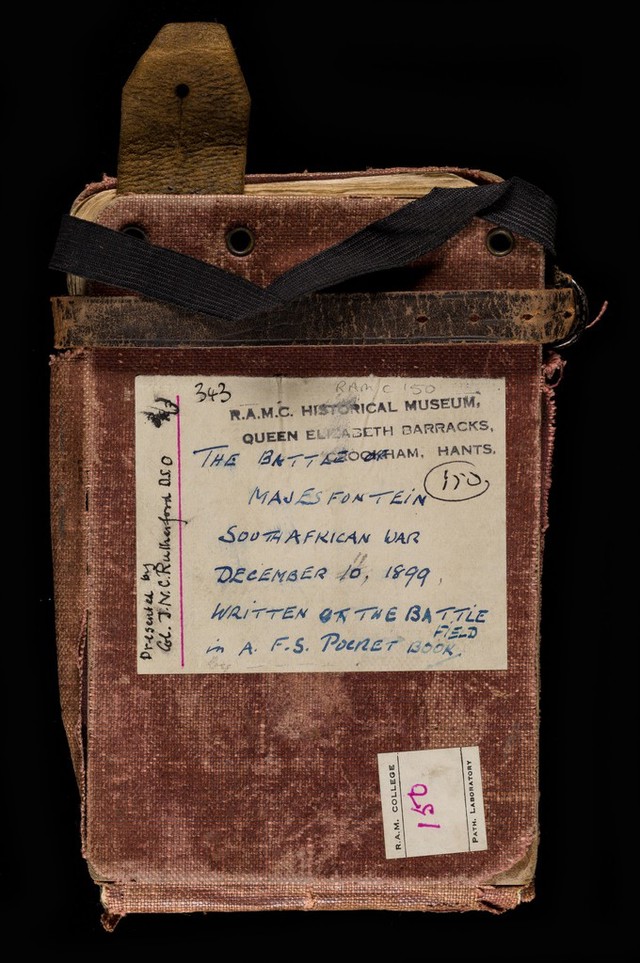 343
RAMC 150
R.A.M.C. HISTORICAL MUSEUM,
QUEEN ELIZABETH BARRACKS,
CROOKHAM, HANTS.
THE BATTLE OF
150
MAJESFONTEIN
SOUTH AFRICAN WAR
DECEMBER 10, 1899,
WRITTEN ON THE BATTLE
FIELD
in A. F.S. POCKET BOOK.
by
Presented by
Col. J.N.C. Rutherford DSO
R.A.M. COLLEGE
150
PATH. LABORATORY